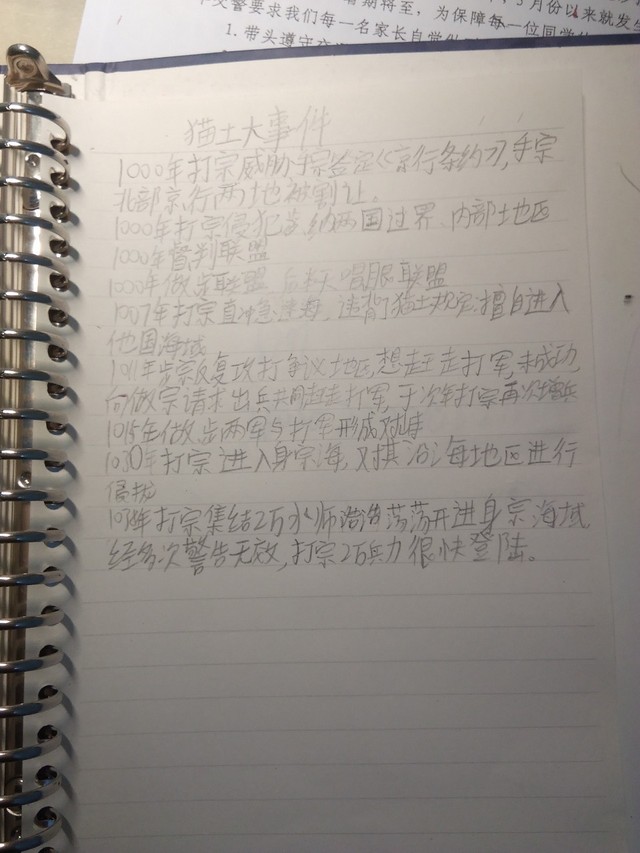 交警要求我们每一名家长自觉
期将至，为保障每一位同学
月份以来就发生
1. 带头遵守交
猫土大事件
1000年打宗威胁手宗签定《京行条约》,手宗
北部京、行两地被割让。
1000年打宗侵犯 纳两国过界、内部地区
1000年督判联盟
1000年做步联盟 唱眼联盟
1007年打宗直冲急速海，违背了猫土规定擅自进入
他国海域
1011年步宗反复攻打争议地区,想赶走打军,未成功,
向做宗请求出兵共同赶走打军,于次年打宗再次增兵
1015年做、步两军与打军形成对峙
1030年打宗进入身宗海,又棋沿海地区进行
侵扰
打宗集结2万水师浩浩荡荡开进身宗海域,
经多次警告无效,打宗2万兵力很快登陆。